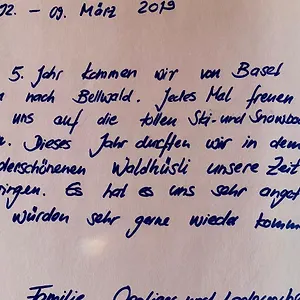 02. - 09. März 2019
5. Jahr kommen wir von Basel
nach Bellwald. Jedes Mal freuen
uns auf die tollen Ski- und Snowboa
Dieses Jahr durften wir in dem
derschönenen Waldhüsli unsere Zeit
ringen. Es hat es uns sehr angef
würden sehr gerne wieder komm
Familie und